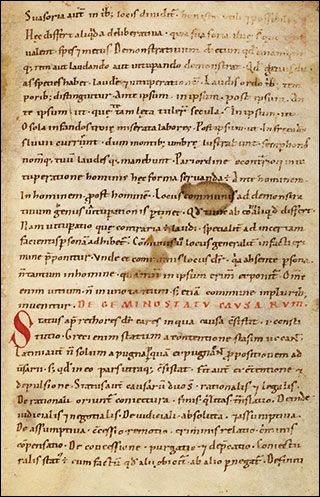 Suasoria aut in trib; locis diuidit͛. honesto utili possibili.
Hęc differt aliqd a deliberatiua. qua suasoria
ualent. spes & metus. Demonstratiuum dictum qd unamquaq;
rem aut laudando aut uituperando demonstrat. Qd gen duas
as species habet. laude & uituperatione. Laudis ordo trib; tem
porib; distinguitur. Ante ipsum. in ipsum. post ipsum. An
te ipsum. ut. que te tam leta tuler secula. In ipsum. ut.
O sola infandos troie miserata labores. Post ipsum. ut. In freta dū
fluuii current. dum montib; umbrę lustrabunt. semp honos
nomq; tuū laudesq; manebunt. Pari ordine e contrario & in ui
tuperatione hominis hęc forma seruanda ē. Ante hominem.
In hominem. post hominē. Locus communis ad demonstra
tiuum gen uitupationis ptinet. Qd tam ab eo aliqd differt.
Nam uitupatio que contraria ē laudi. specialit ad incertam
facientis psonā adhibet͛. Communis u locus generalit in facti cri
mine pponitur. Unde & communis locus dr. qa absente psona.
n tantum in homine. quantū in ipsum crim exponit͛. Om ne
enim uitium. n in uno tantum. s; etiā commune in plurimis
inuenitur. DE GEMINO STATU CAUSARUM.
Status ap rethores dr. ea res in qua causa c̄sistit. i. consti
tutio. Greci enim statum a contentione stasim uocant.
Latini aut n solum a pugna p qua expugnant ppositionem ad
uersarii. s; qd in eo pars utraq; c̄sistat. fit aut ex intentione &
depulsione. Status aut causarū duo s. rationalis & legalis.
De rationali oriunt. coniectura. finis. qlitas. translatio. De fine
iudicialis & negotialis. De iudiciali. absoluta. & assumptiua.
De assumptiua. c̄cessio. remotio. criminis relatio. criminis
cōpensatio. De concessione. purgatio. & depcatio. Coniectu
ralis stat ē. cum factū qd alii obicit͛. ab alio pnegat͛. Definiti